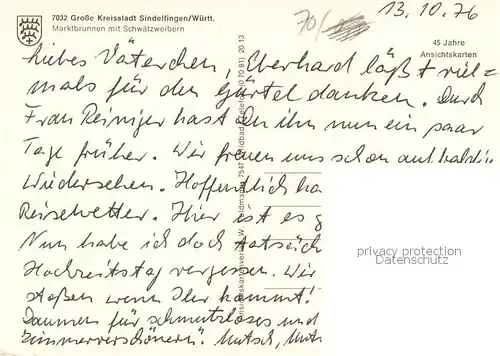 7032 Große Kreisstadt Sindelfingen/Württ.
Marktbrunnen mit Schwätzweibern
70/
13.10.76
45 Jahre
Ansichtskarten
liebes Väterchen, Eberhard läßt viel=
mals für den Gürtel danken. Durch
Frau Reiniger hast Du ihn nun ein paar
Tage früher. Wir freuen uns schon auf
Wiedersehen. Hoffentlich ha
Reisewetter. Hier ist es g
Nun habe ich doch tatsäch
Hochzeitstag vergessen. Wir
stoßen wenn Ihr kommt!
Daumen für schmutzloses und
Zimmerverschönern! Mutsch,
7547 Wildbad, Telefon (0 70 81) 20 13
privacy protection
Datenschutz